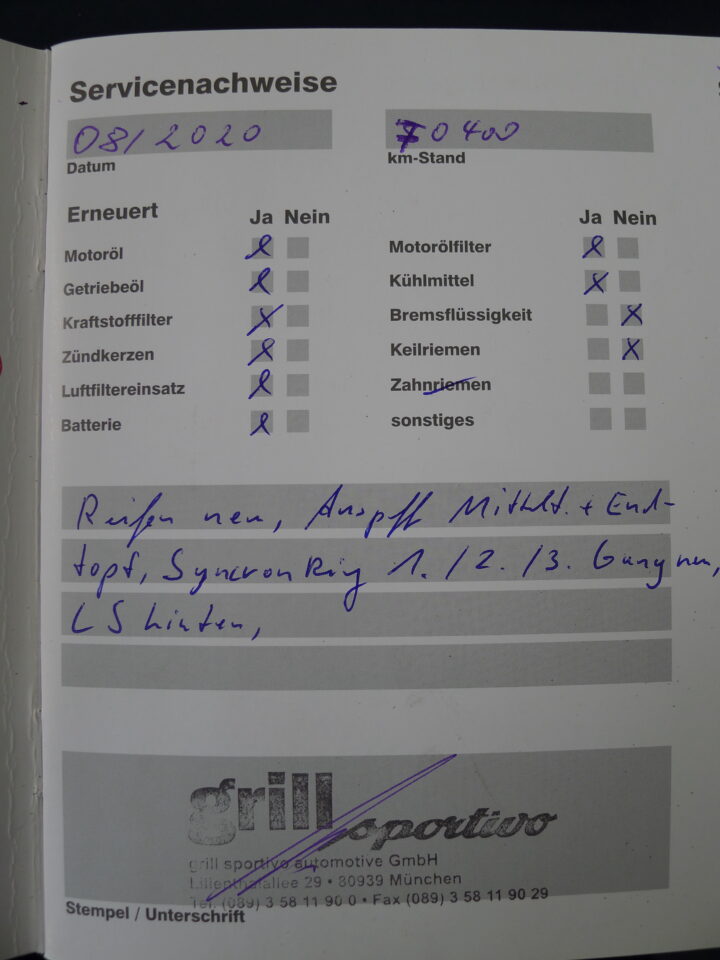 Servicenachweise
08/2020 70400
Datum km-Stand
Erneuert Ja Nein Ja Nein
Motoröl Motorölfilter
Getriebeöl Kühlmittel
Kraftstofffilter Bremsflüssigkeit
Zündkerzen Keilriemen
Luftfiltereinsatz Zahnriemen
Batterie sonstiges
Reifen neu, Auspuff Mittelt. + End-
topf, Syncron Ring 1./2./3. Gang neu,
LS hinten,
grill sportivo
grill sportivo automotive GmbH
Lilienthalallee 29 • 80939 München
Tel. (089) 3 58 11 90 0 • Fax (089) 3 58 11 90 29
Stempel / Unterschrift